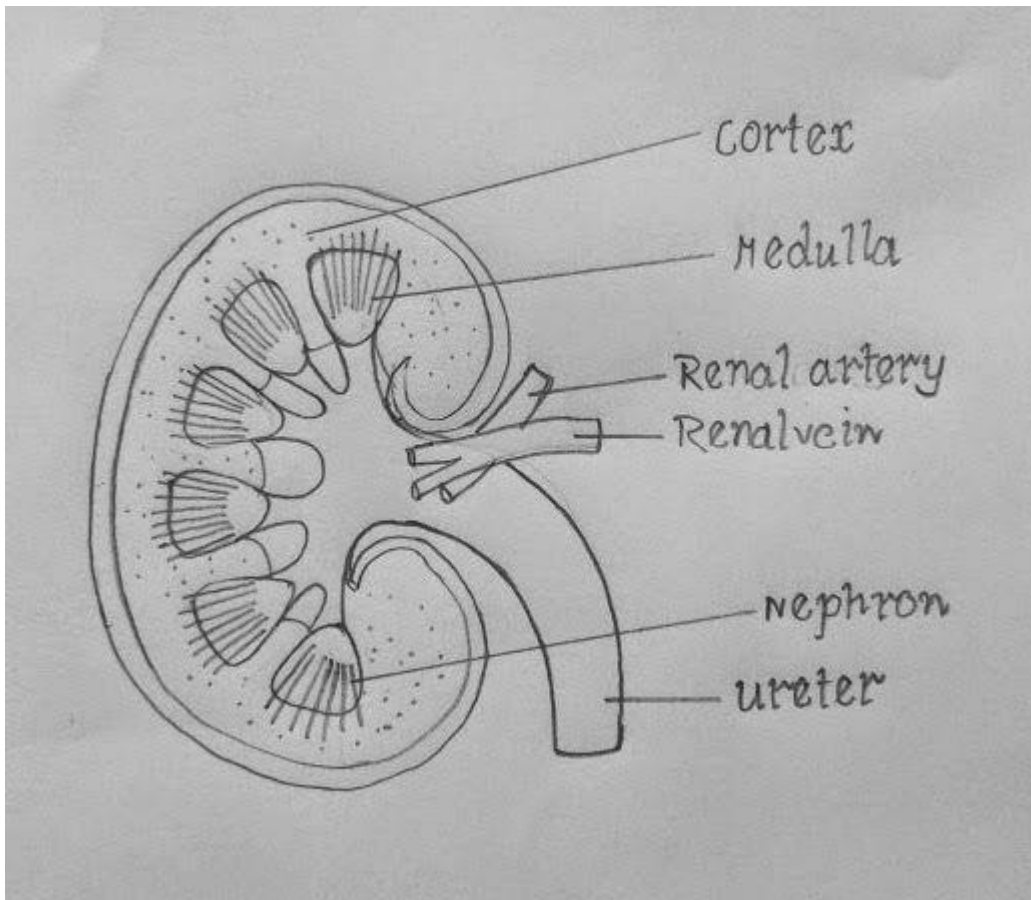 cortex
Medulla
Renal artery
Renalvein
Nephron
ureter